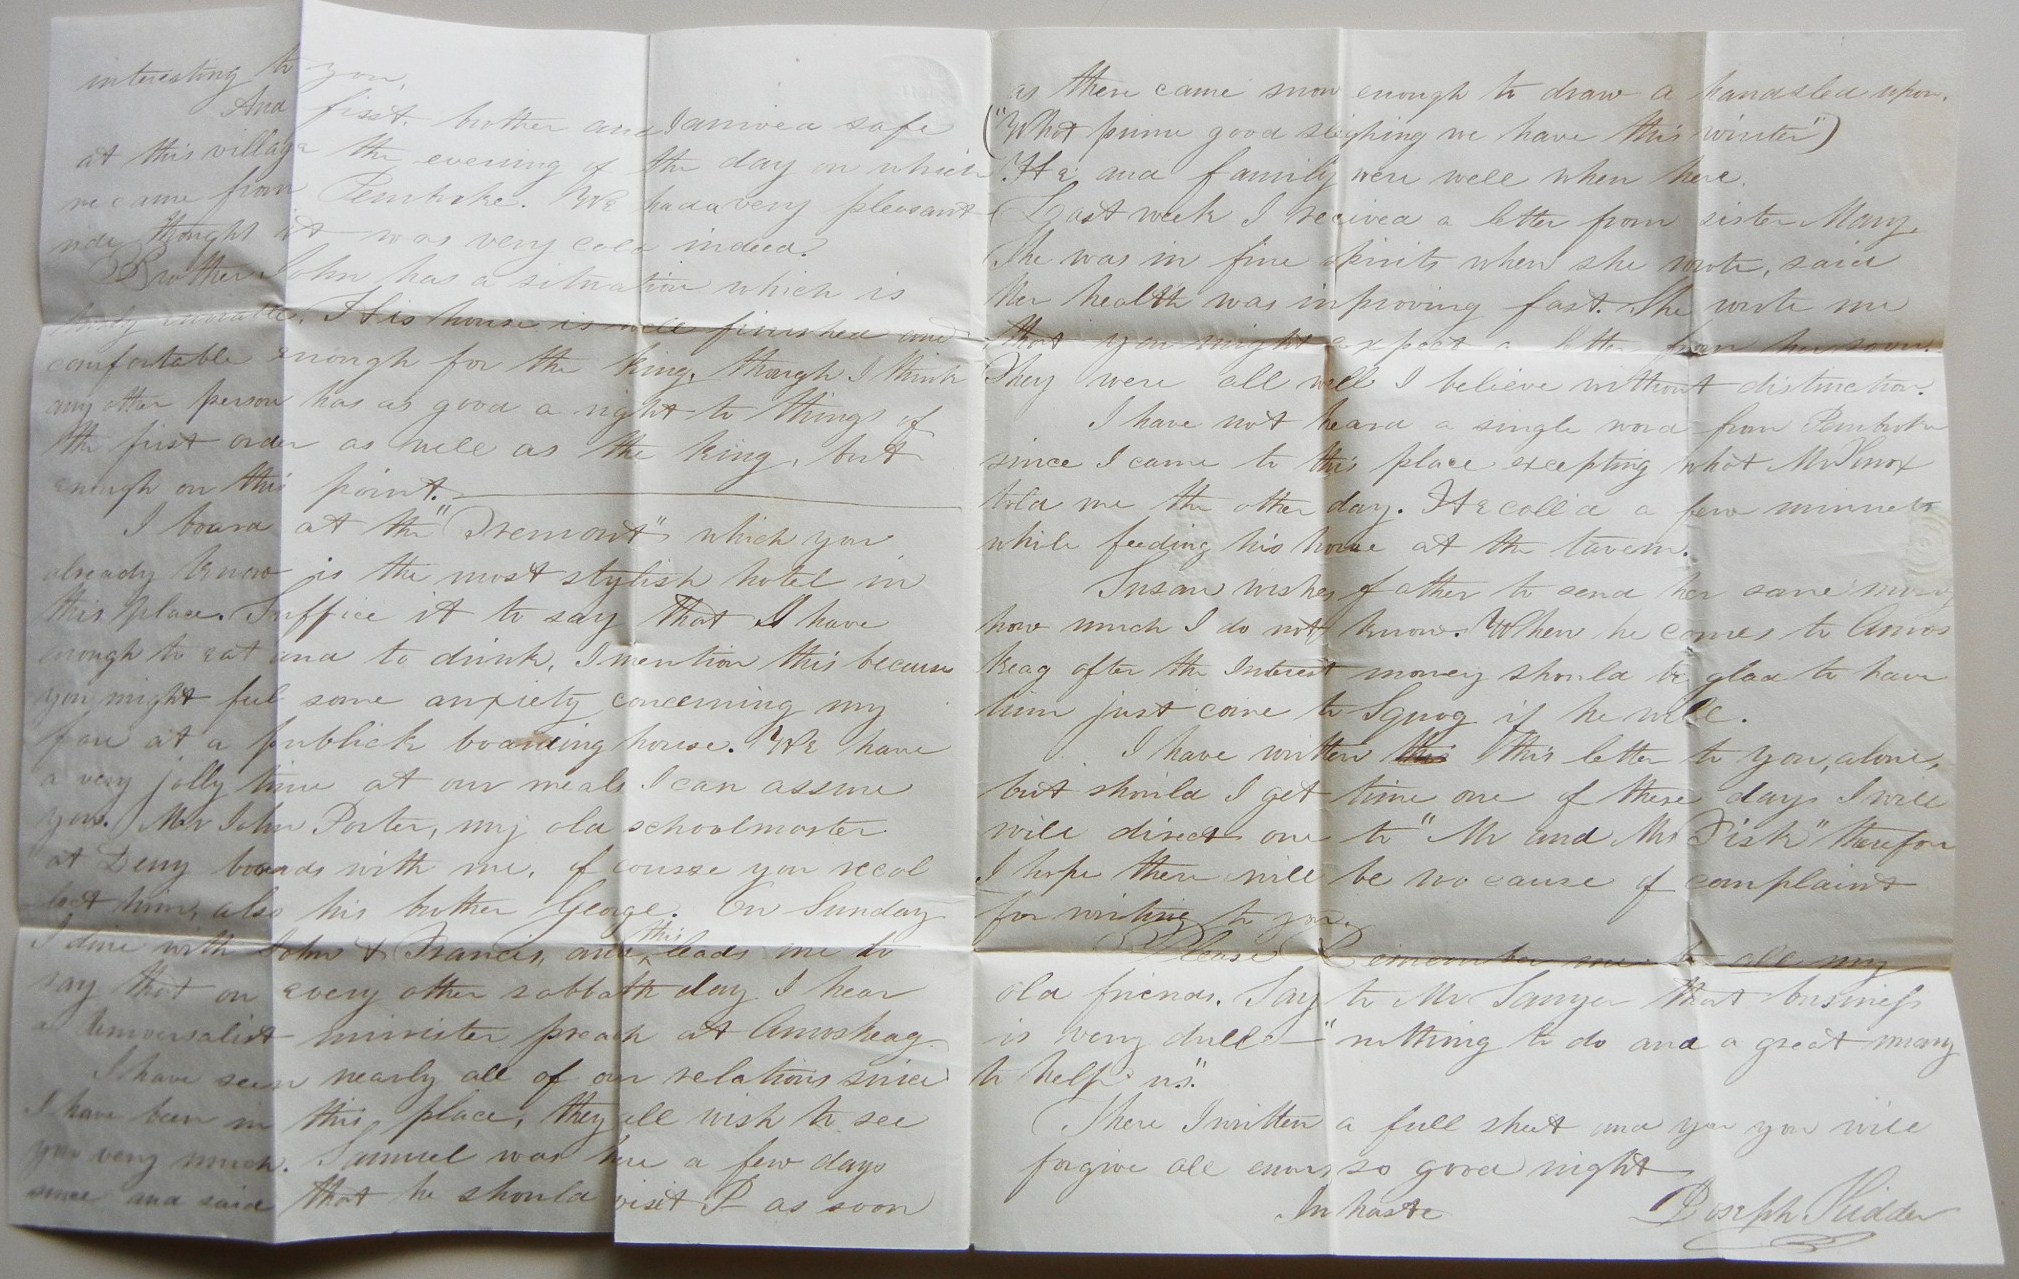 interesting to you.
And first. brother and I arrived safe
at this village the evening of the day on which
we came from Pembroke. We had a very pleasant
ride thought it was very cold indeed.
Brother John has a situation which is
truly enviable. His house is well finished and
comfortable enough for the king, though I think
any other person has as good a right to things of
the first order as well as the king, but
enough on this point.
I board at the "Tremont" which you
already know is the most stylish hotel in
this place. Suffice it to say that I have
enough to eat and to drink, I mention this because
you might feel some anxiety concerning my
fare at a publick boarding house. We have
a very jolly time at our meals I can assure
you. Mr John Porter, my old schoolmaster
at Derry boards with me, of course you recol
lect him, also his brother George. On Sunday
I dine with John & Francis, and this leads me to
say that on every other sabbath day I hear
a Universalist minister preach at Amoskeag
I have seen nearly all of our relations since
I have been in this place, they all wish to see
you very much. Samuel was here a few days
since and said that he should visit P as soon
as there came snow enough to draw a handsled upon.
("What prime good sleighing we have this winter")
He and family were well when here.
Last week I recived a letter from sister Mary.
She was in fine spirits when she wrote, said
her health was inproving fast. She wrote me
that you might expect a letter from her soon.
They were all well I believe without distinction.
I have not heard a single word from Pembroke
since I came to this place excepting what Mr Knox
told me the other day. He call'd a few minnets
while feeding his horse at the tavern.
Susan wishes father to send her some money
how much I do not know. When he comes to Amos
keag after the Interest money should be glad to have
him just come to Squog if he will.
I have written this this letter to you, alone,
but should I get time one of these days I will
will direct one to "Mr and Mrs Fisk" therefore
I hope there will be no cause of complaint
for writing to you.
Please Remember me to all my
old friends. Say to Mr Sawyer that business
is very dull - "nothing to do and a great many
to help us".
There I written a full sheet and yer you will
forgive all errors, so good night
In haste Joseph Kidder